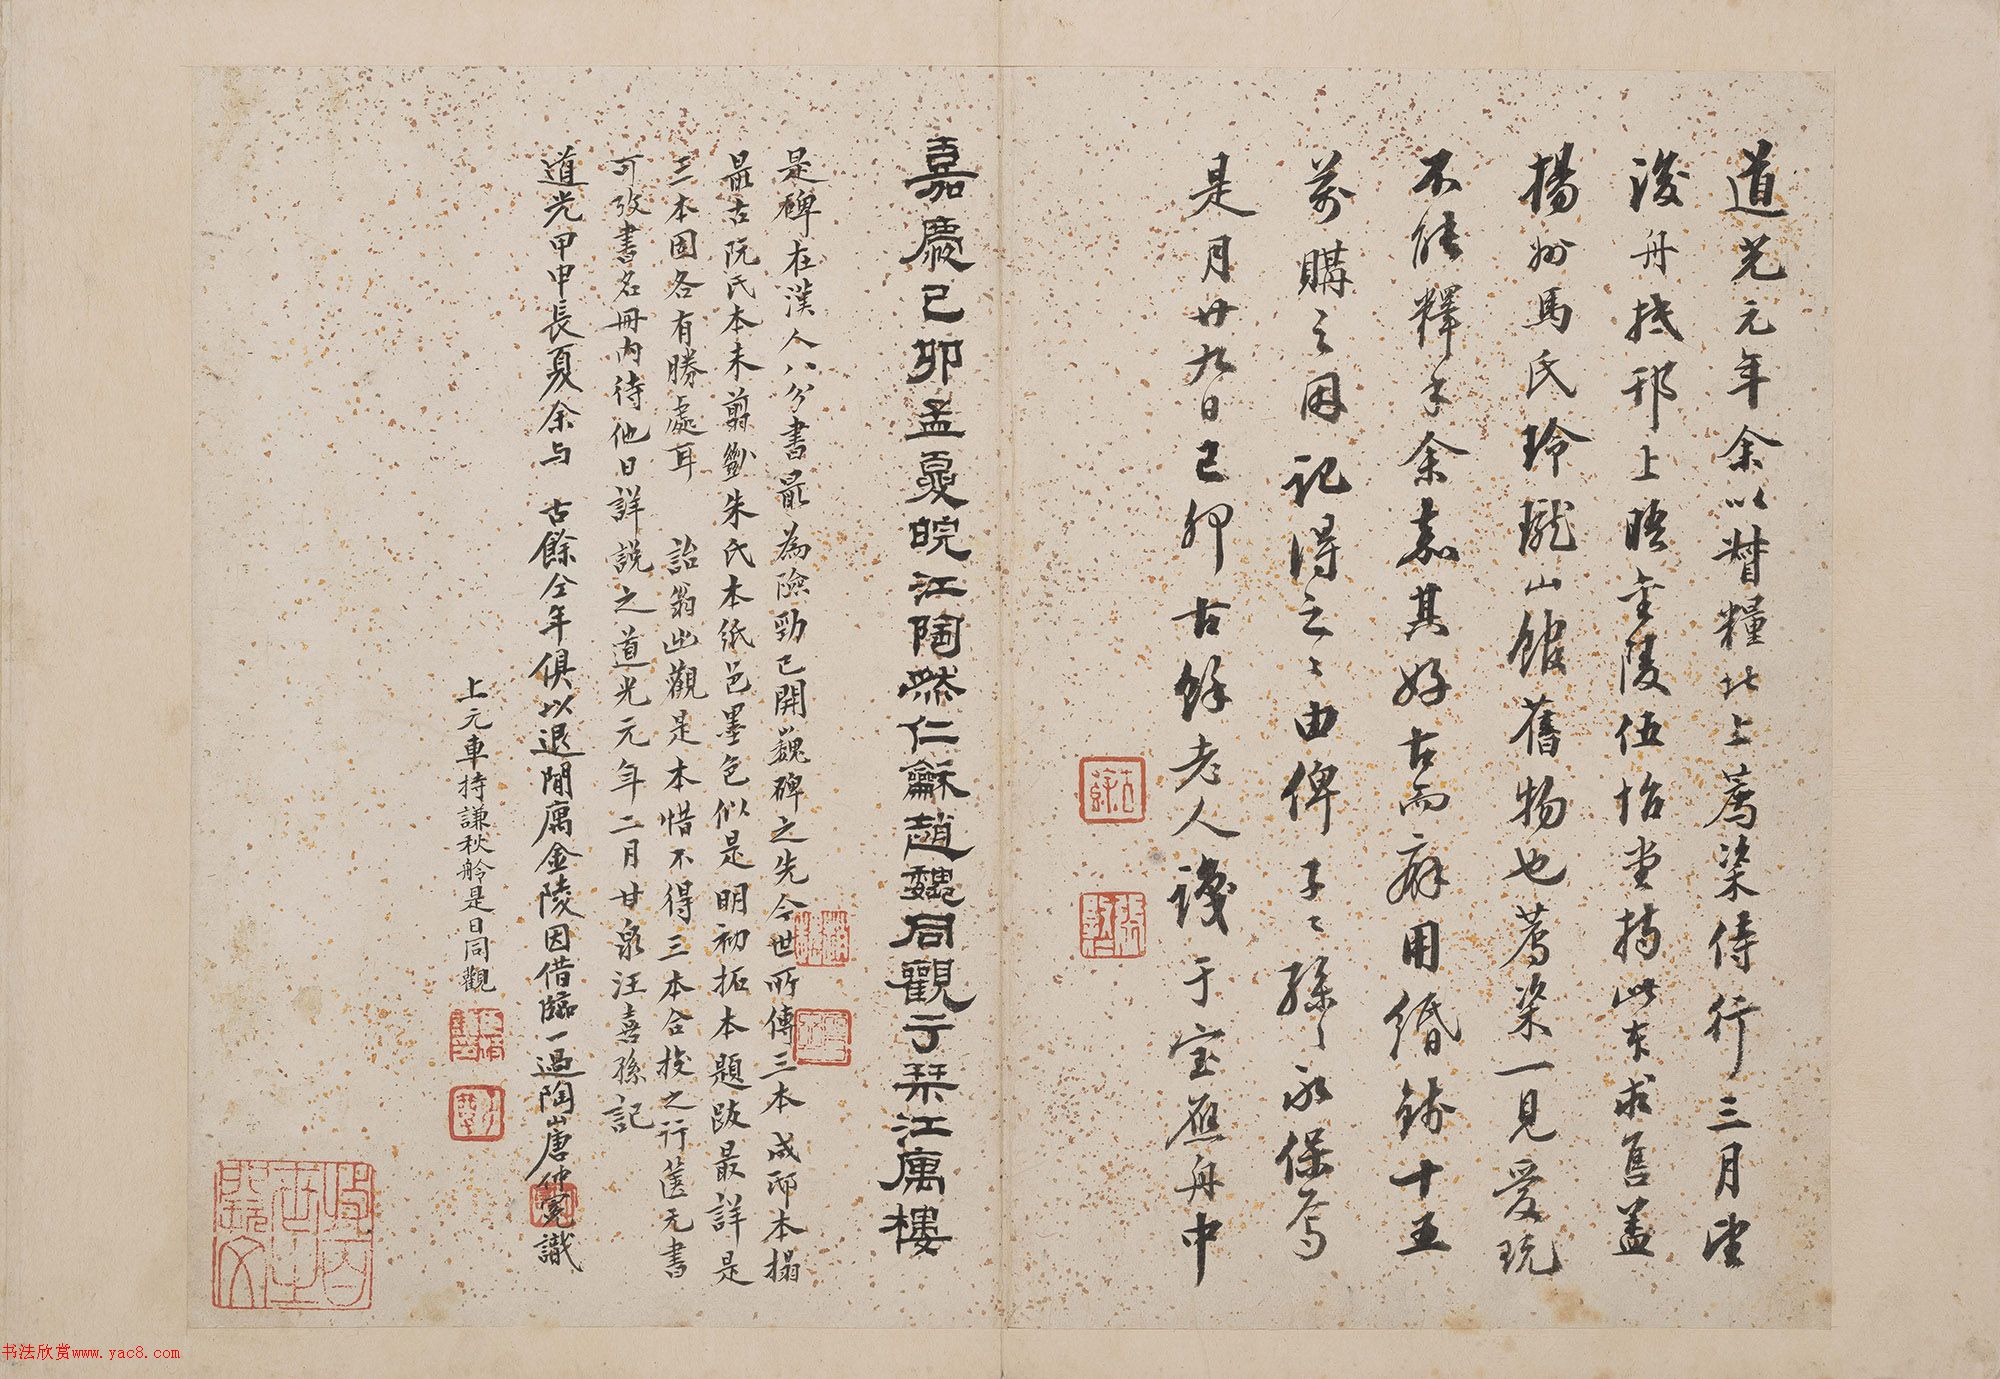 道光元年余以督糧北上荐粢侍行三月望
後舟抵邗上晤金陵伍怡堂持此本求售蓋
揚州馬氏玲瓏山館舊物也荐粢一見愛玩
不能釋手余嘉其好古而癖用緡錢十五
萬購之因記得之之由俾子子孫永保焉
是月廿九日己卯古餘老人識于宝應舟中
嘉慶己卯孟夏皖江陶然仁龢趙魏同觀于琹江寓樓
是碑在漢人八分書最為險勁已開巍碑之先今世所傳三本成邸本搨
最古阮氏本未翦劙朱氏本紙色墨色似是明初拓本題跋最詳是
三本固各有勝處耳 詒翁出觀是本惜不得三本合挍之行篋无書
可攷書名冊內待他日詳說之道光元年二月甘泉汪喜孫記
道光甲申長夏余与 古餘仝年俱以退閒寓金陵因借臨一過陶山唐仲冕識
上元車持謙秋舲是日同觀
书法欣赏www.yac8.com